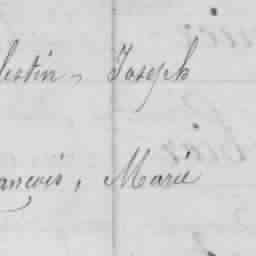 lestin, Joseph
ancois, Marie